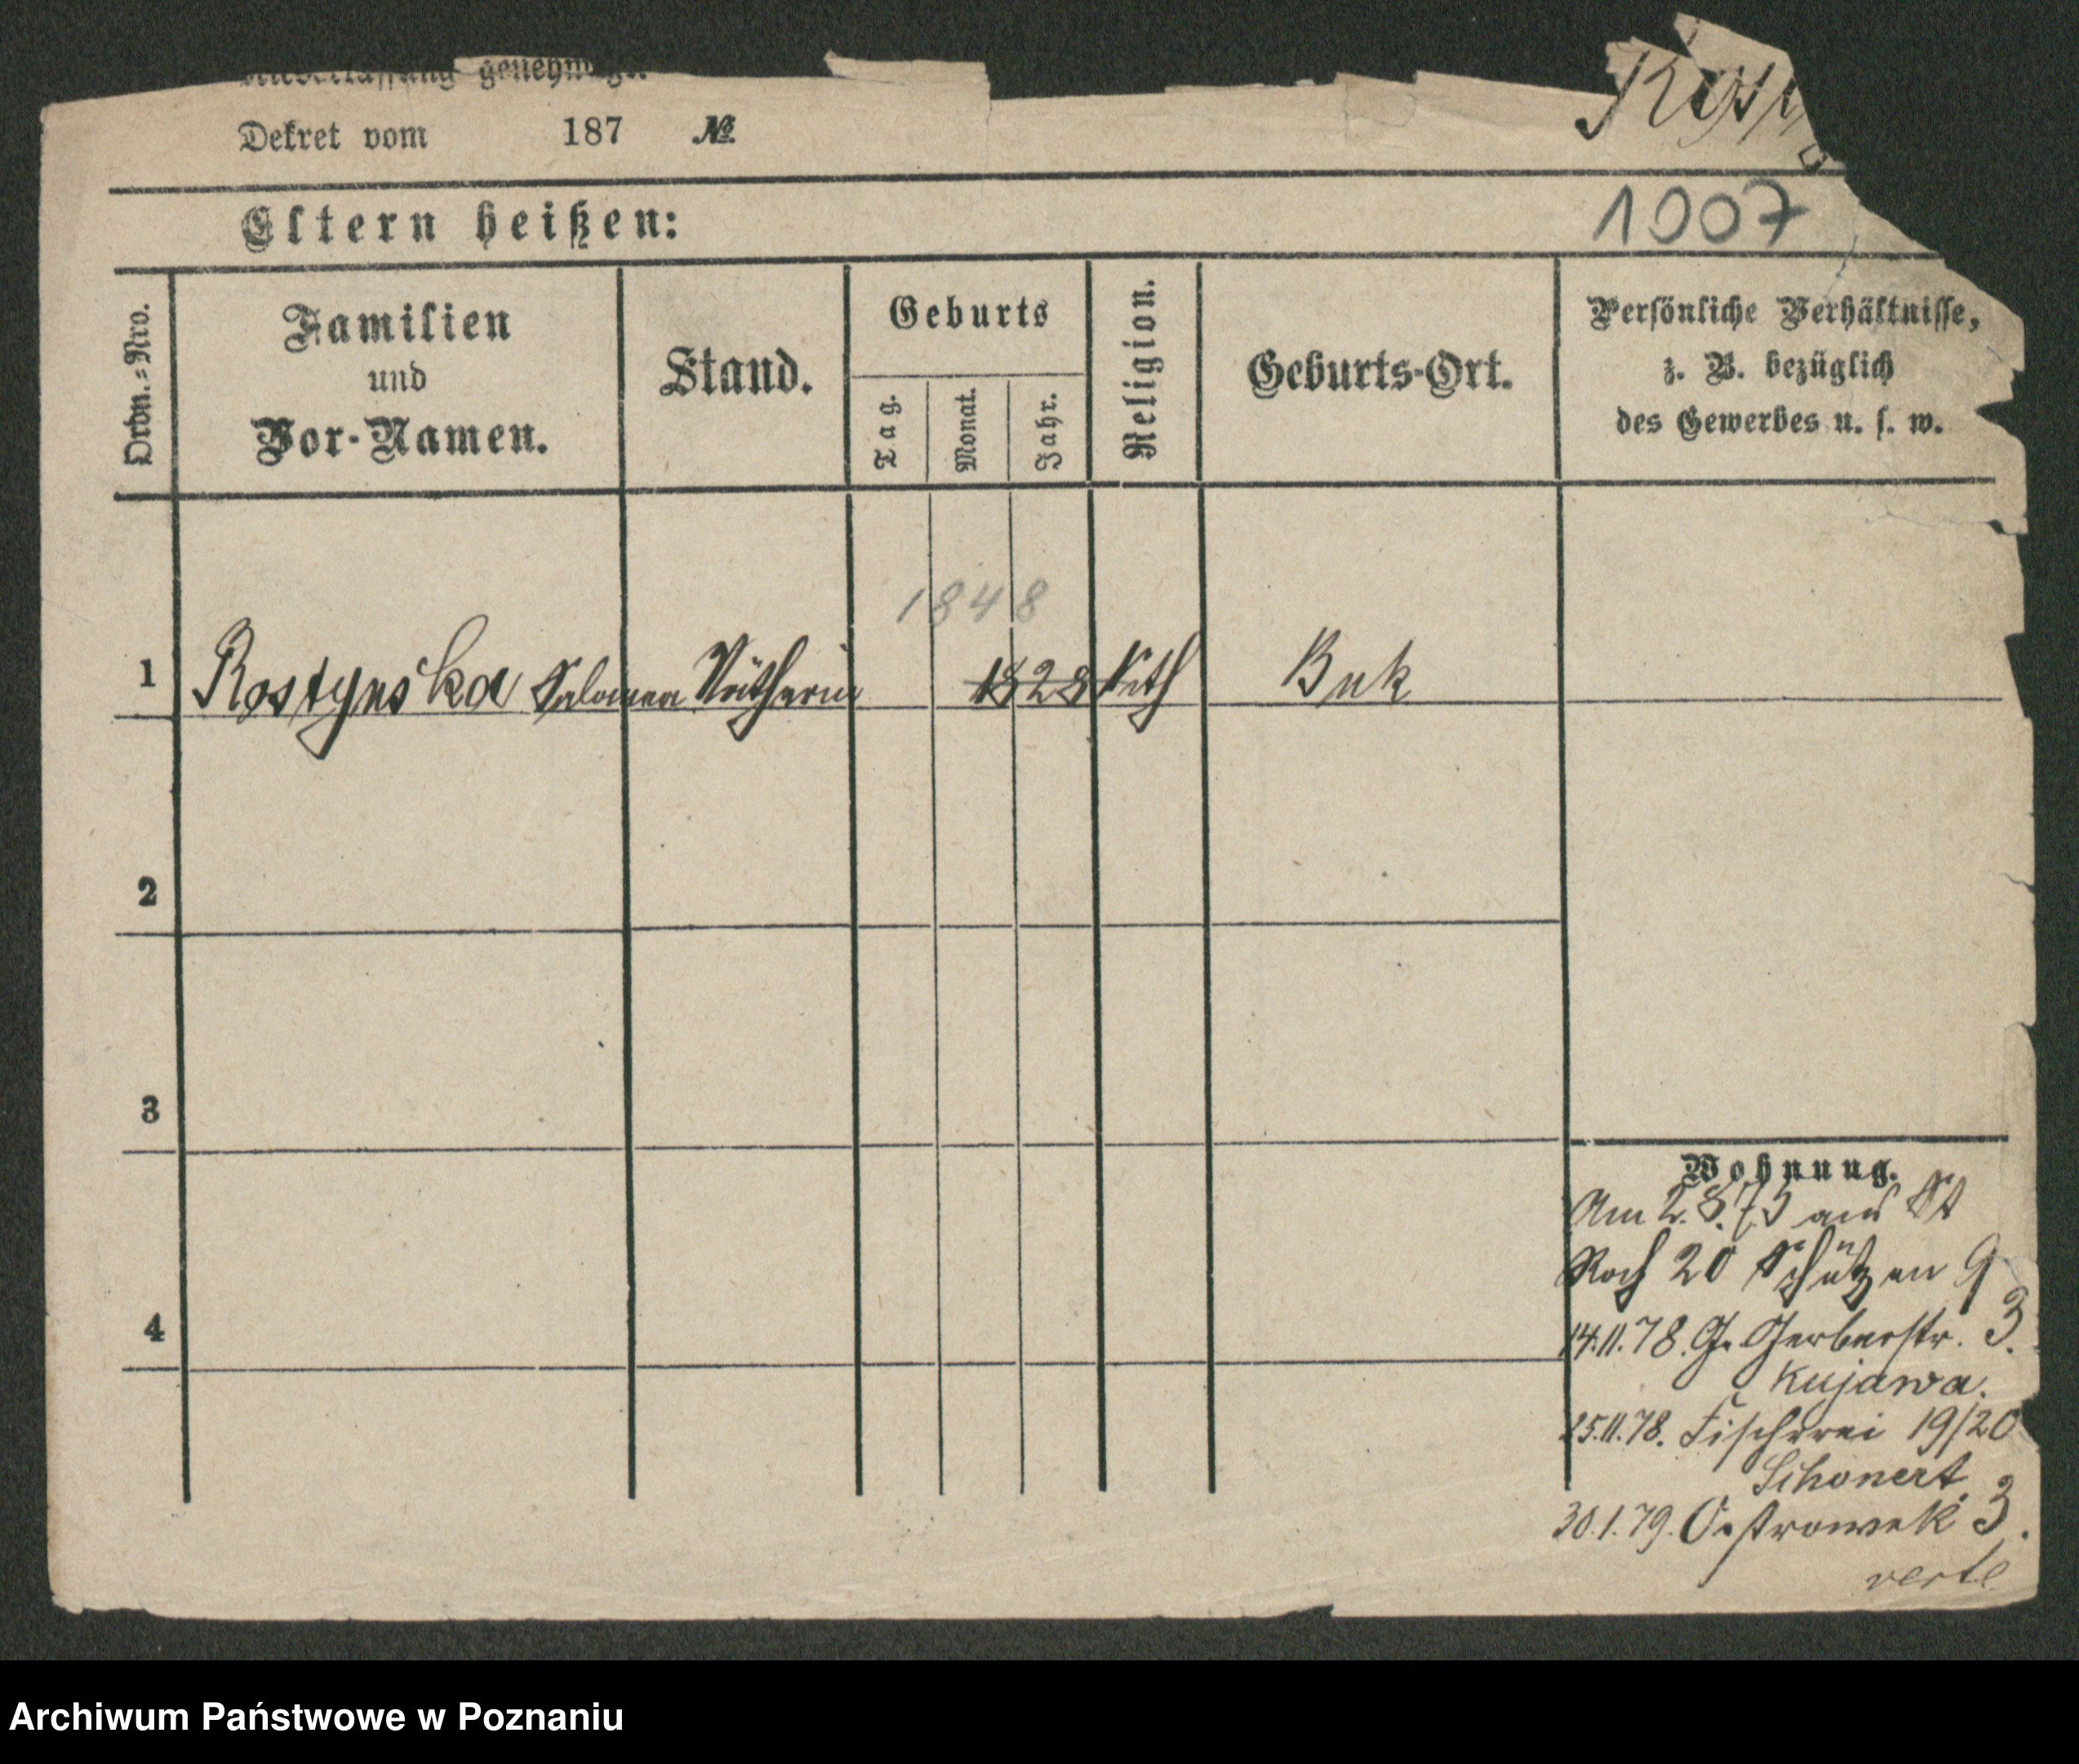 Niederlassung genehmigt.
Dekret vom 187 №
1007
Eltern heißen:
Ordn.-Nro.
Familien
und
Vor-Namen.
Stand.
Geburts
Tag.
Monat.
Jahr.
Religion.
Geburts-Ort.
Persönliche Verhältnisse,
z. B. bezüglich
des Gewerbes u. s. w.
1848
1 Rostynska Salomea Nätherin 1828 Kath Buk
2
3
4
Wohnung.
Am 2.8.75 aus St
Roch 20 Schützen
14.11.78. G. Gerberstr. 3.
Kujawa.
25.11.78. Fischerei 19/20
Schonert.
30.1.79. Ostrowek 3.
verte
Archiwum Państwowe w Poznaniu